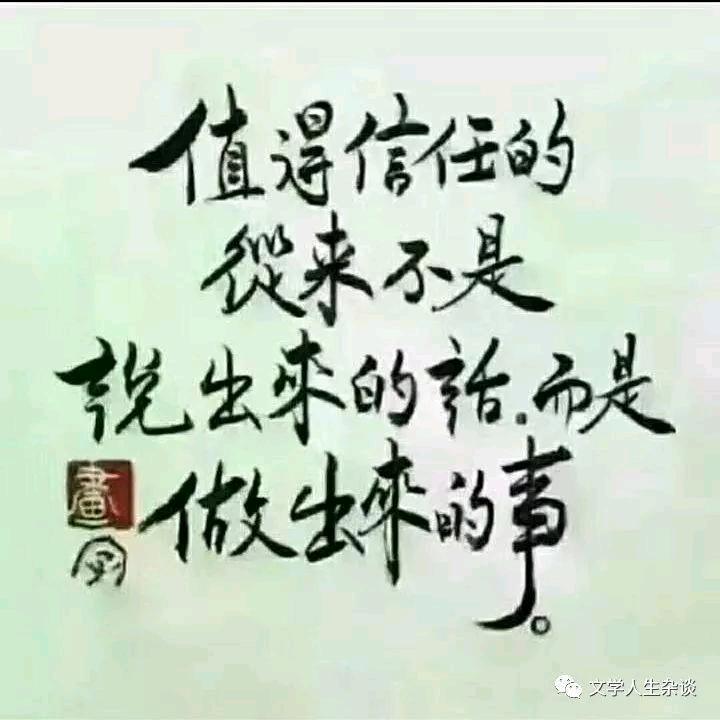 值得信任的
從来不是
說出來的話.而是
做出來的事。
畫
文学人生杂谈